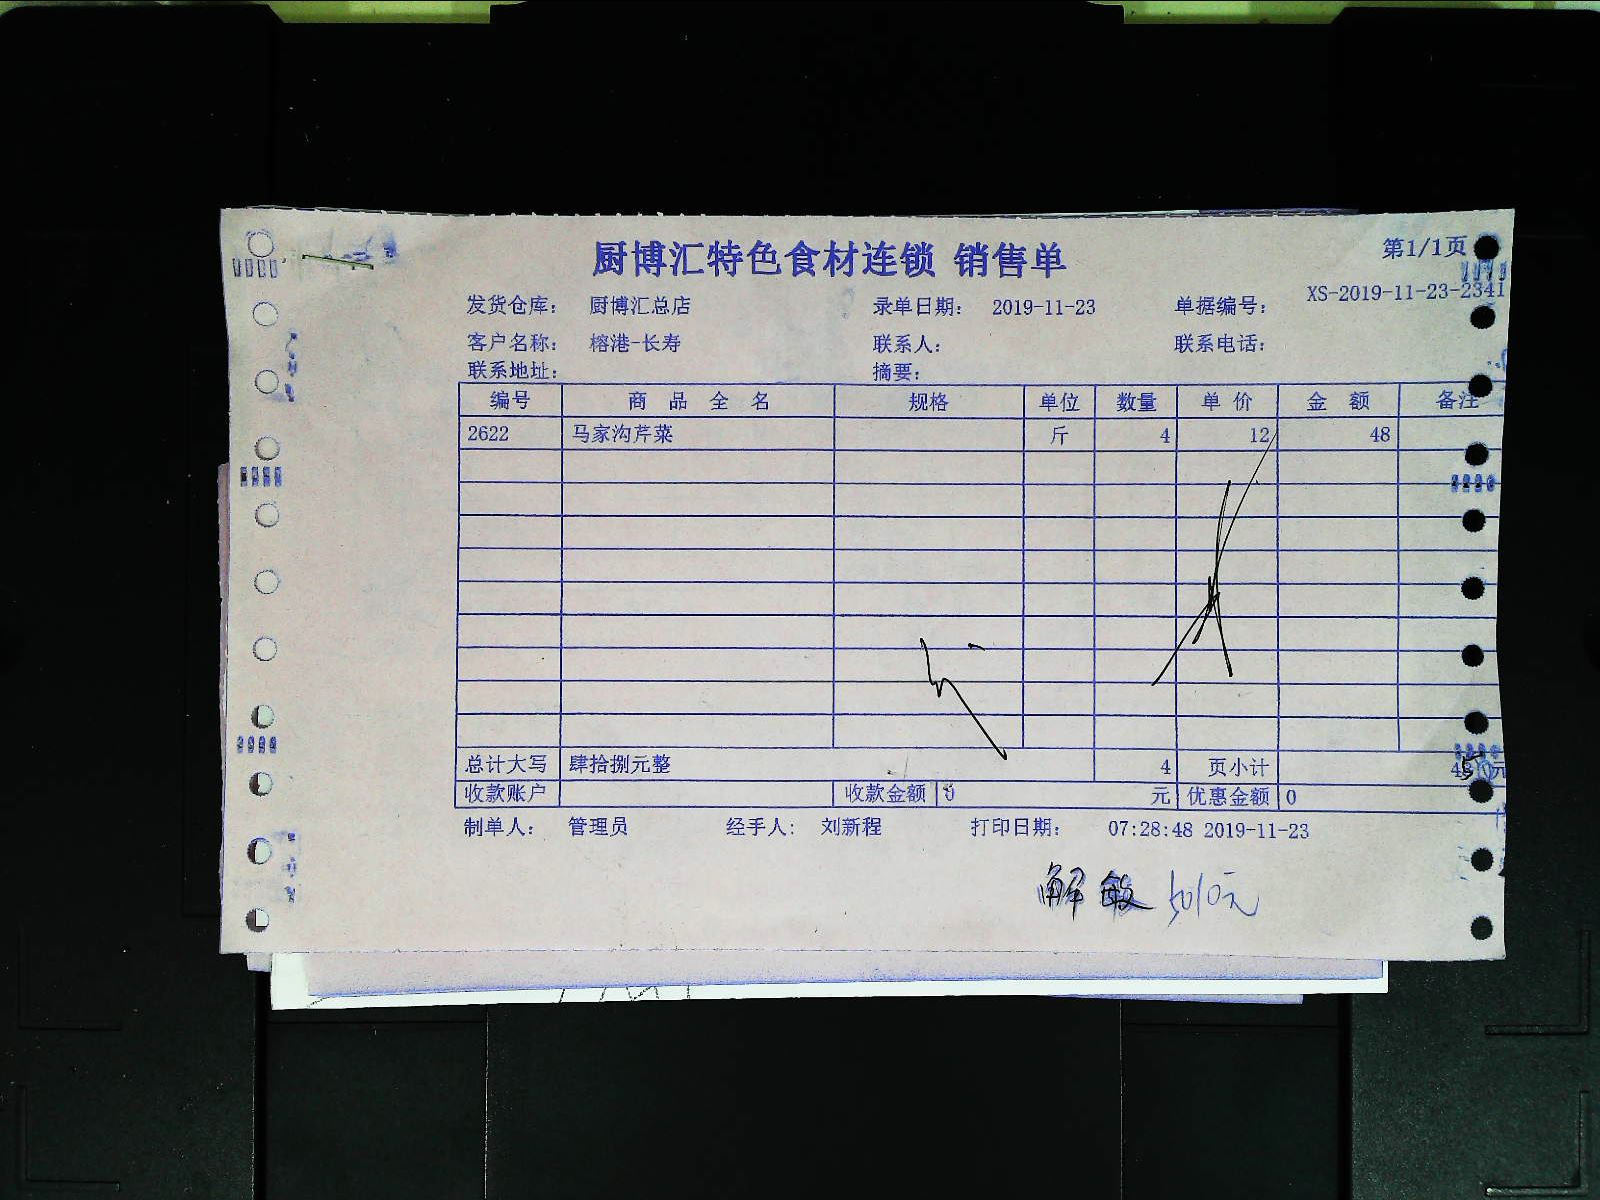 厨博汇特色食材连锁 销售单
第1/1页
发货仓库: 厨博汇总店 录单日期: 2019-11-23 单据编号: XS-2019-11-23-2341
客户名称: 榕港-长寿 联系人: 联系电话:
联系地址: 摘要:
编号 商品全名 规格 单位 数量 单价 金额 备注
2622 马家沟芹菜 斤 4 12 48
总计大写 肆拾捌元整 4 页小计 元
收款账户 收款金额 0 元 优惠金额 0
制单人: 管理员 经手人: 刘新程 打印日期: 07:28:48 2019-11-23
解敏